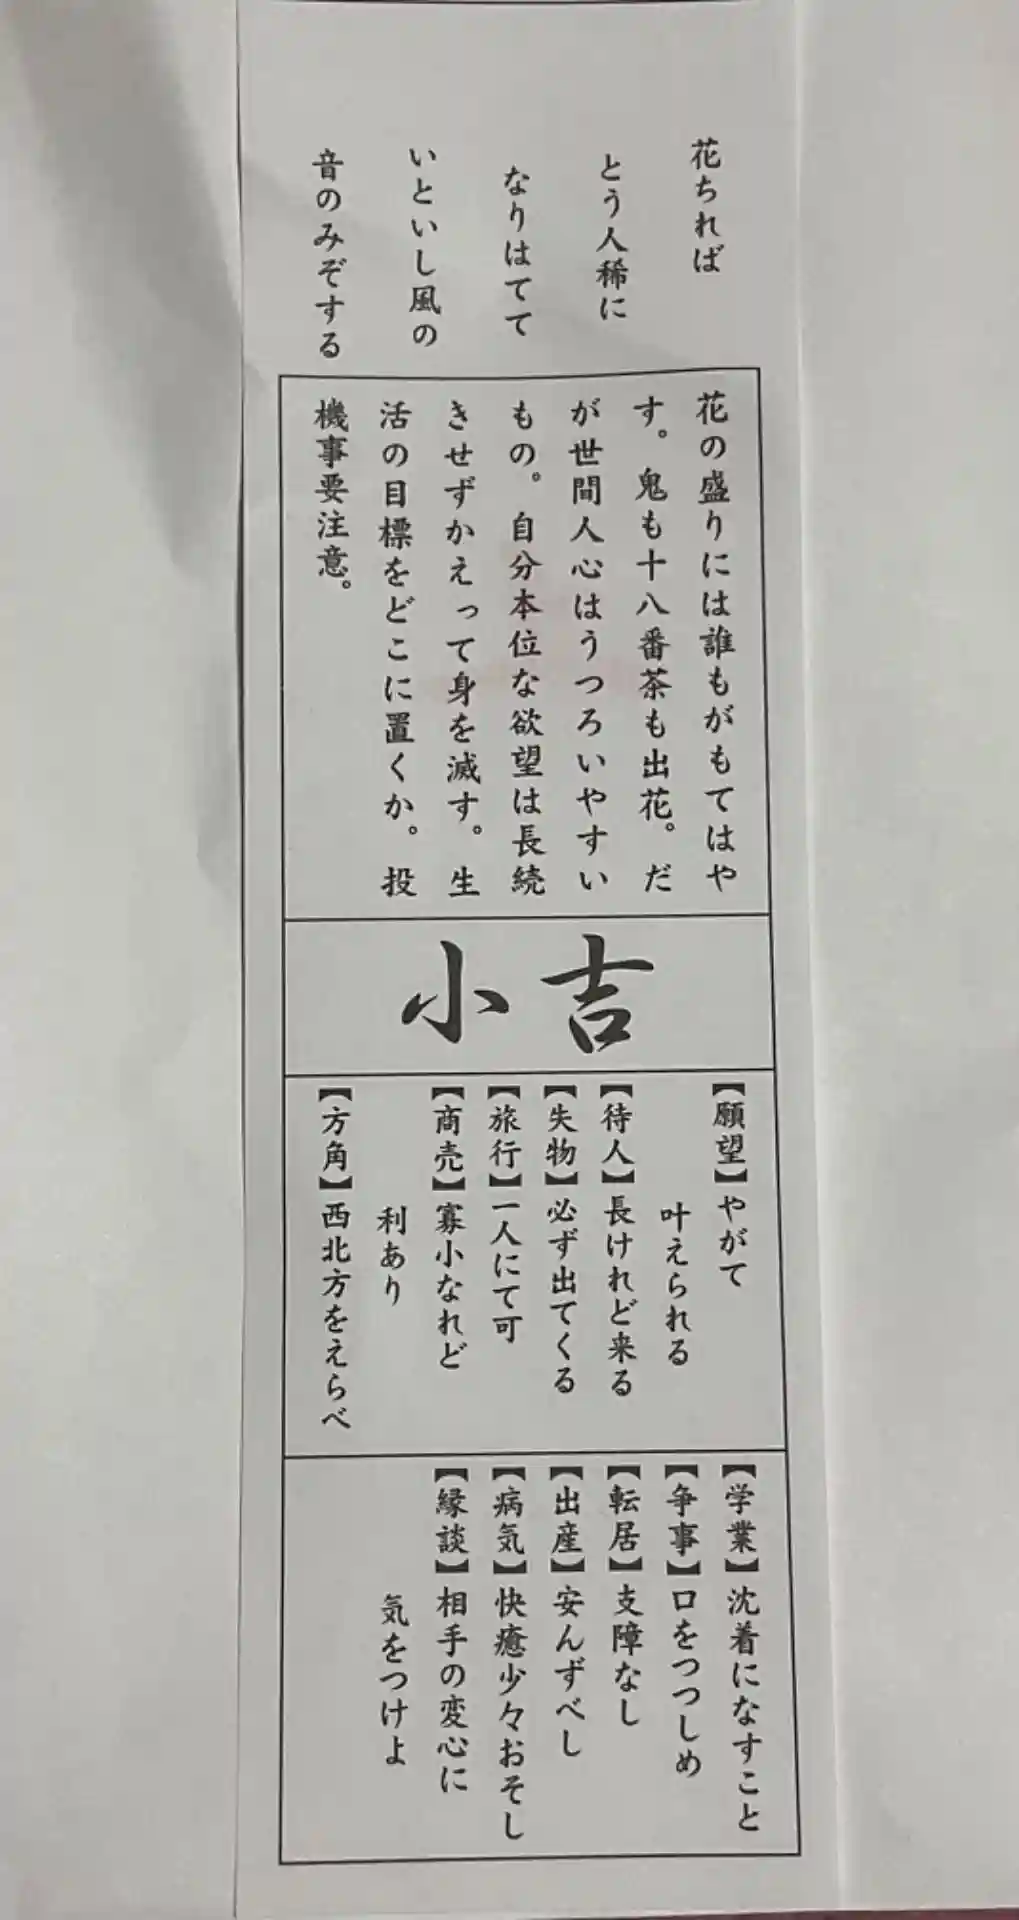 花ちれば
とう人稀に
なりはてて
いといし風の
音のみぞする
花の盛りには誰もがもてはや
す。鬼も十八番茶も出花。だ
が世間人心はうつろいやすい
もの。自分本位な欲望は長続
きせずかえって身を滅す。生
活の目標をどこに置くか。投
機事要注意。
小吉
【願望】やがて
叶えられる
【待人】長けれど来る
【失物】必ず出てくる
【旅行】一人にて可
【商売】寡小なれど
利あり
【方角】西北方をえらべ
【学業】沈着になすこと
【争事】口をつつしめ
【転居】支障なし
【出産】安んずべし
【病気】快癒少々おそし
【縁談】相手の変心に
気をつけよ